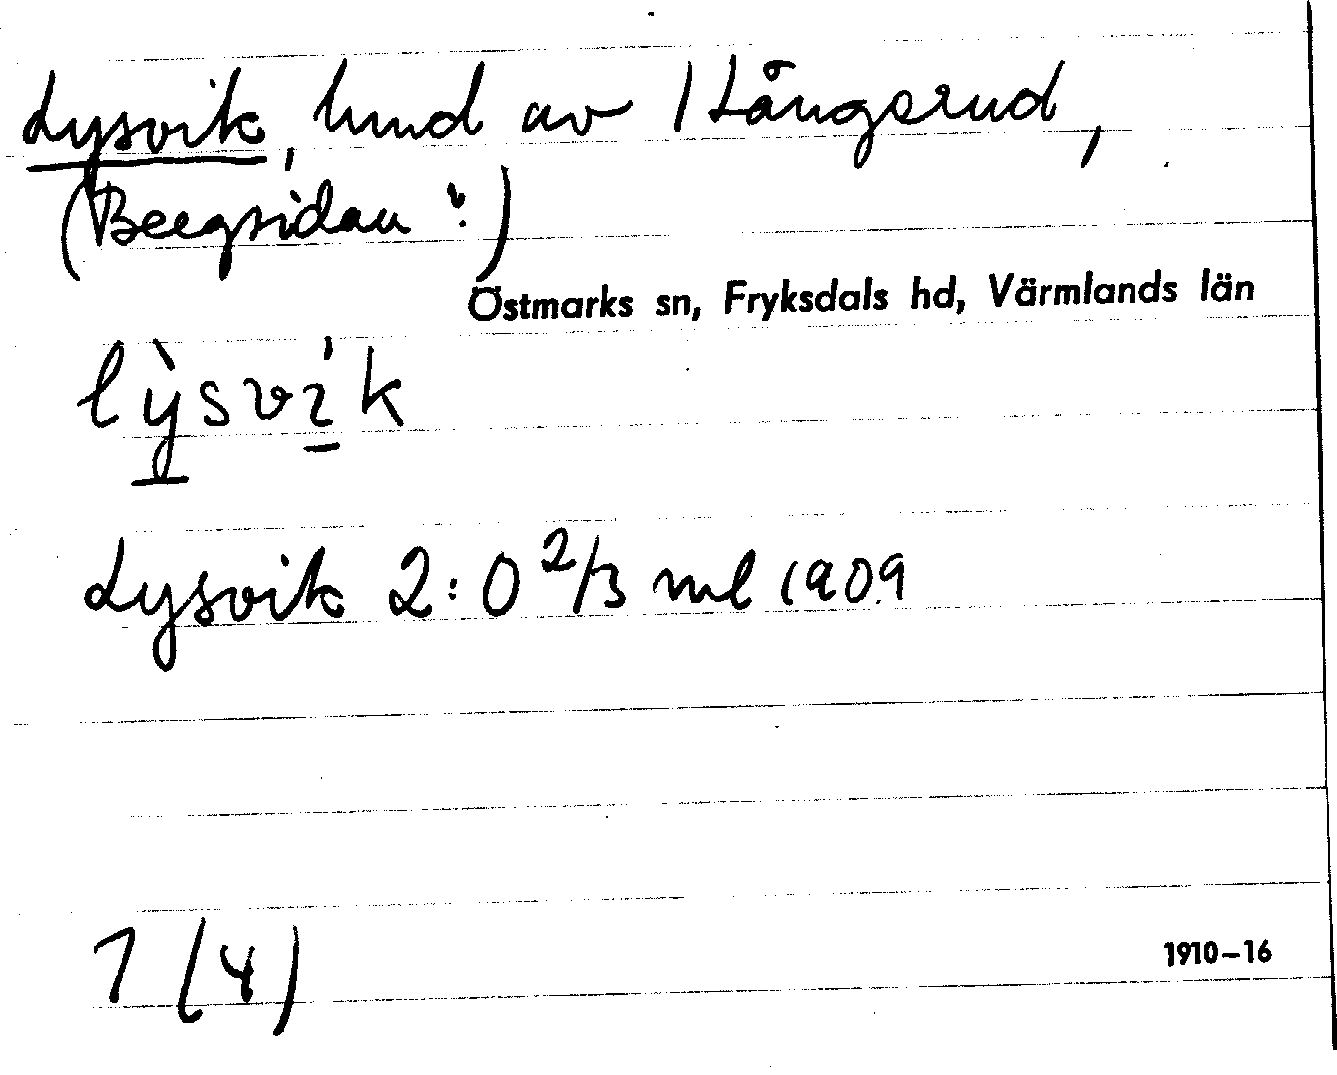 Lysvik, hmd av 1 Långsrud,
(Bergsidan :)
Östmarks sn, Fryksdals hd, Värmlands län
lỳsvík
Lysvik 2:0 2/3 ml 1909
1 (4)
1910–16